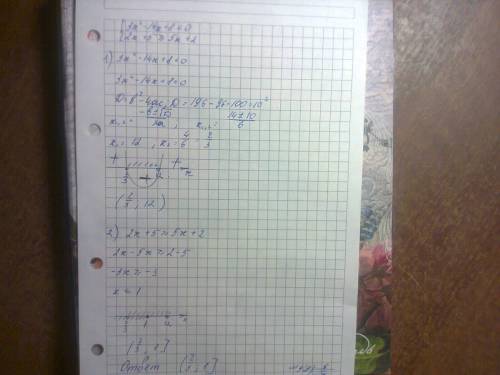 3x² - 14x + 8 < 0
2x + 5 ≥ 5x + 2
1) 3x² - 14x + 8 < 0
3x² - 14x + 8 = 0
D = b² - 4ac, D = 196 - 96 = 100 = 10²
x₁,₂ = , x₁,₂ = 14±10/6
x₁ = , x₂ = 4/6 = 2/3
+ - + x
(2/3; )
2) 2x + 5 ≥ 5x + 2
2x - 5x ≥ 2 - 5
-3x ≥ -3
x ≤ 1
2/3 1 x
(2/3; 1]
Ответ (2/3; 1]